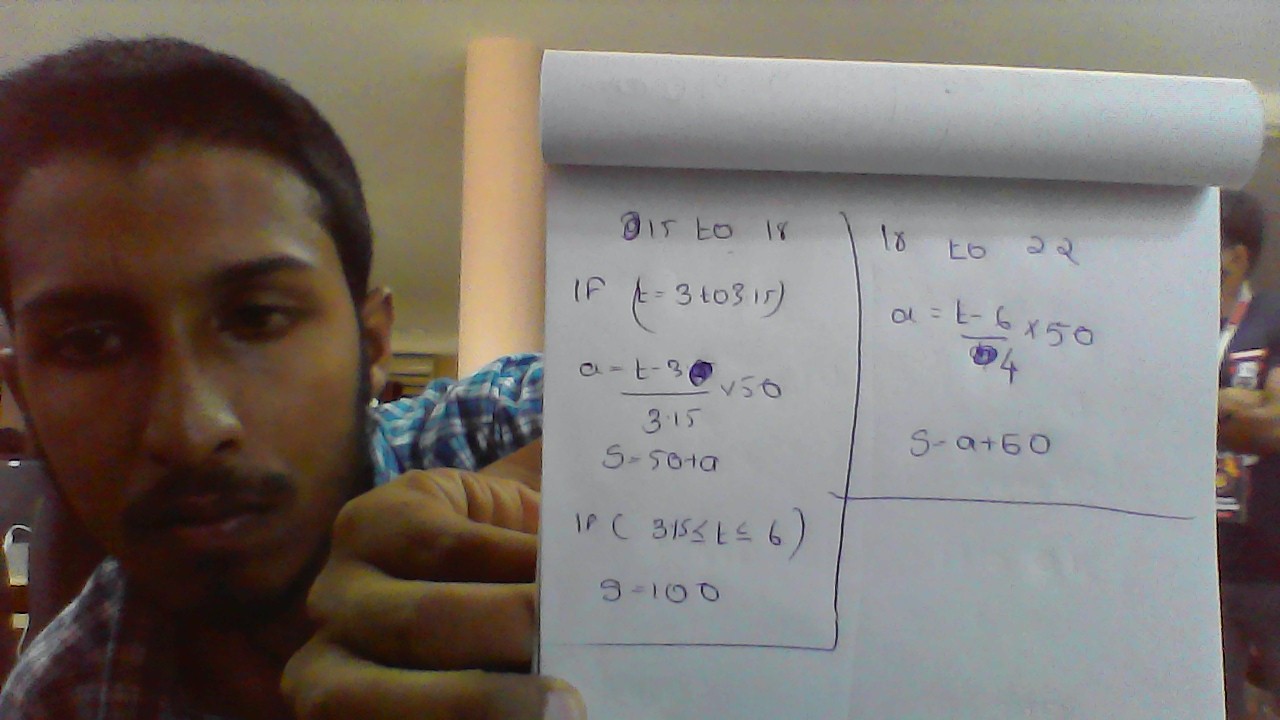 15 to 18
IF (t = 3 to 3.15)
a = t - 3 / 3.15 x 50
S = 50 + a
IF ( 3.15 ≤ t ≤ 6 )
S = 100
18 to 22
a = t - 6 / 4 x 50
S = a + 50